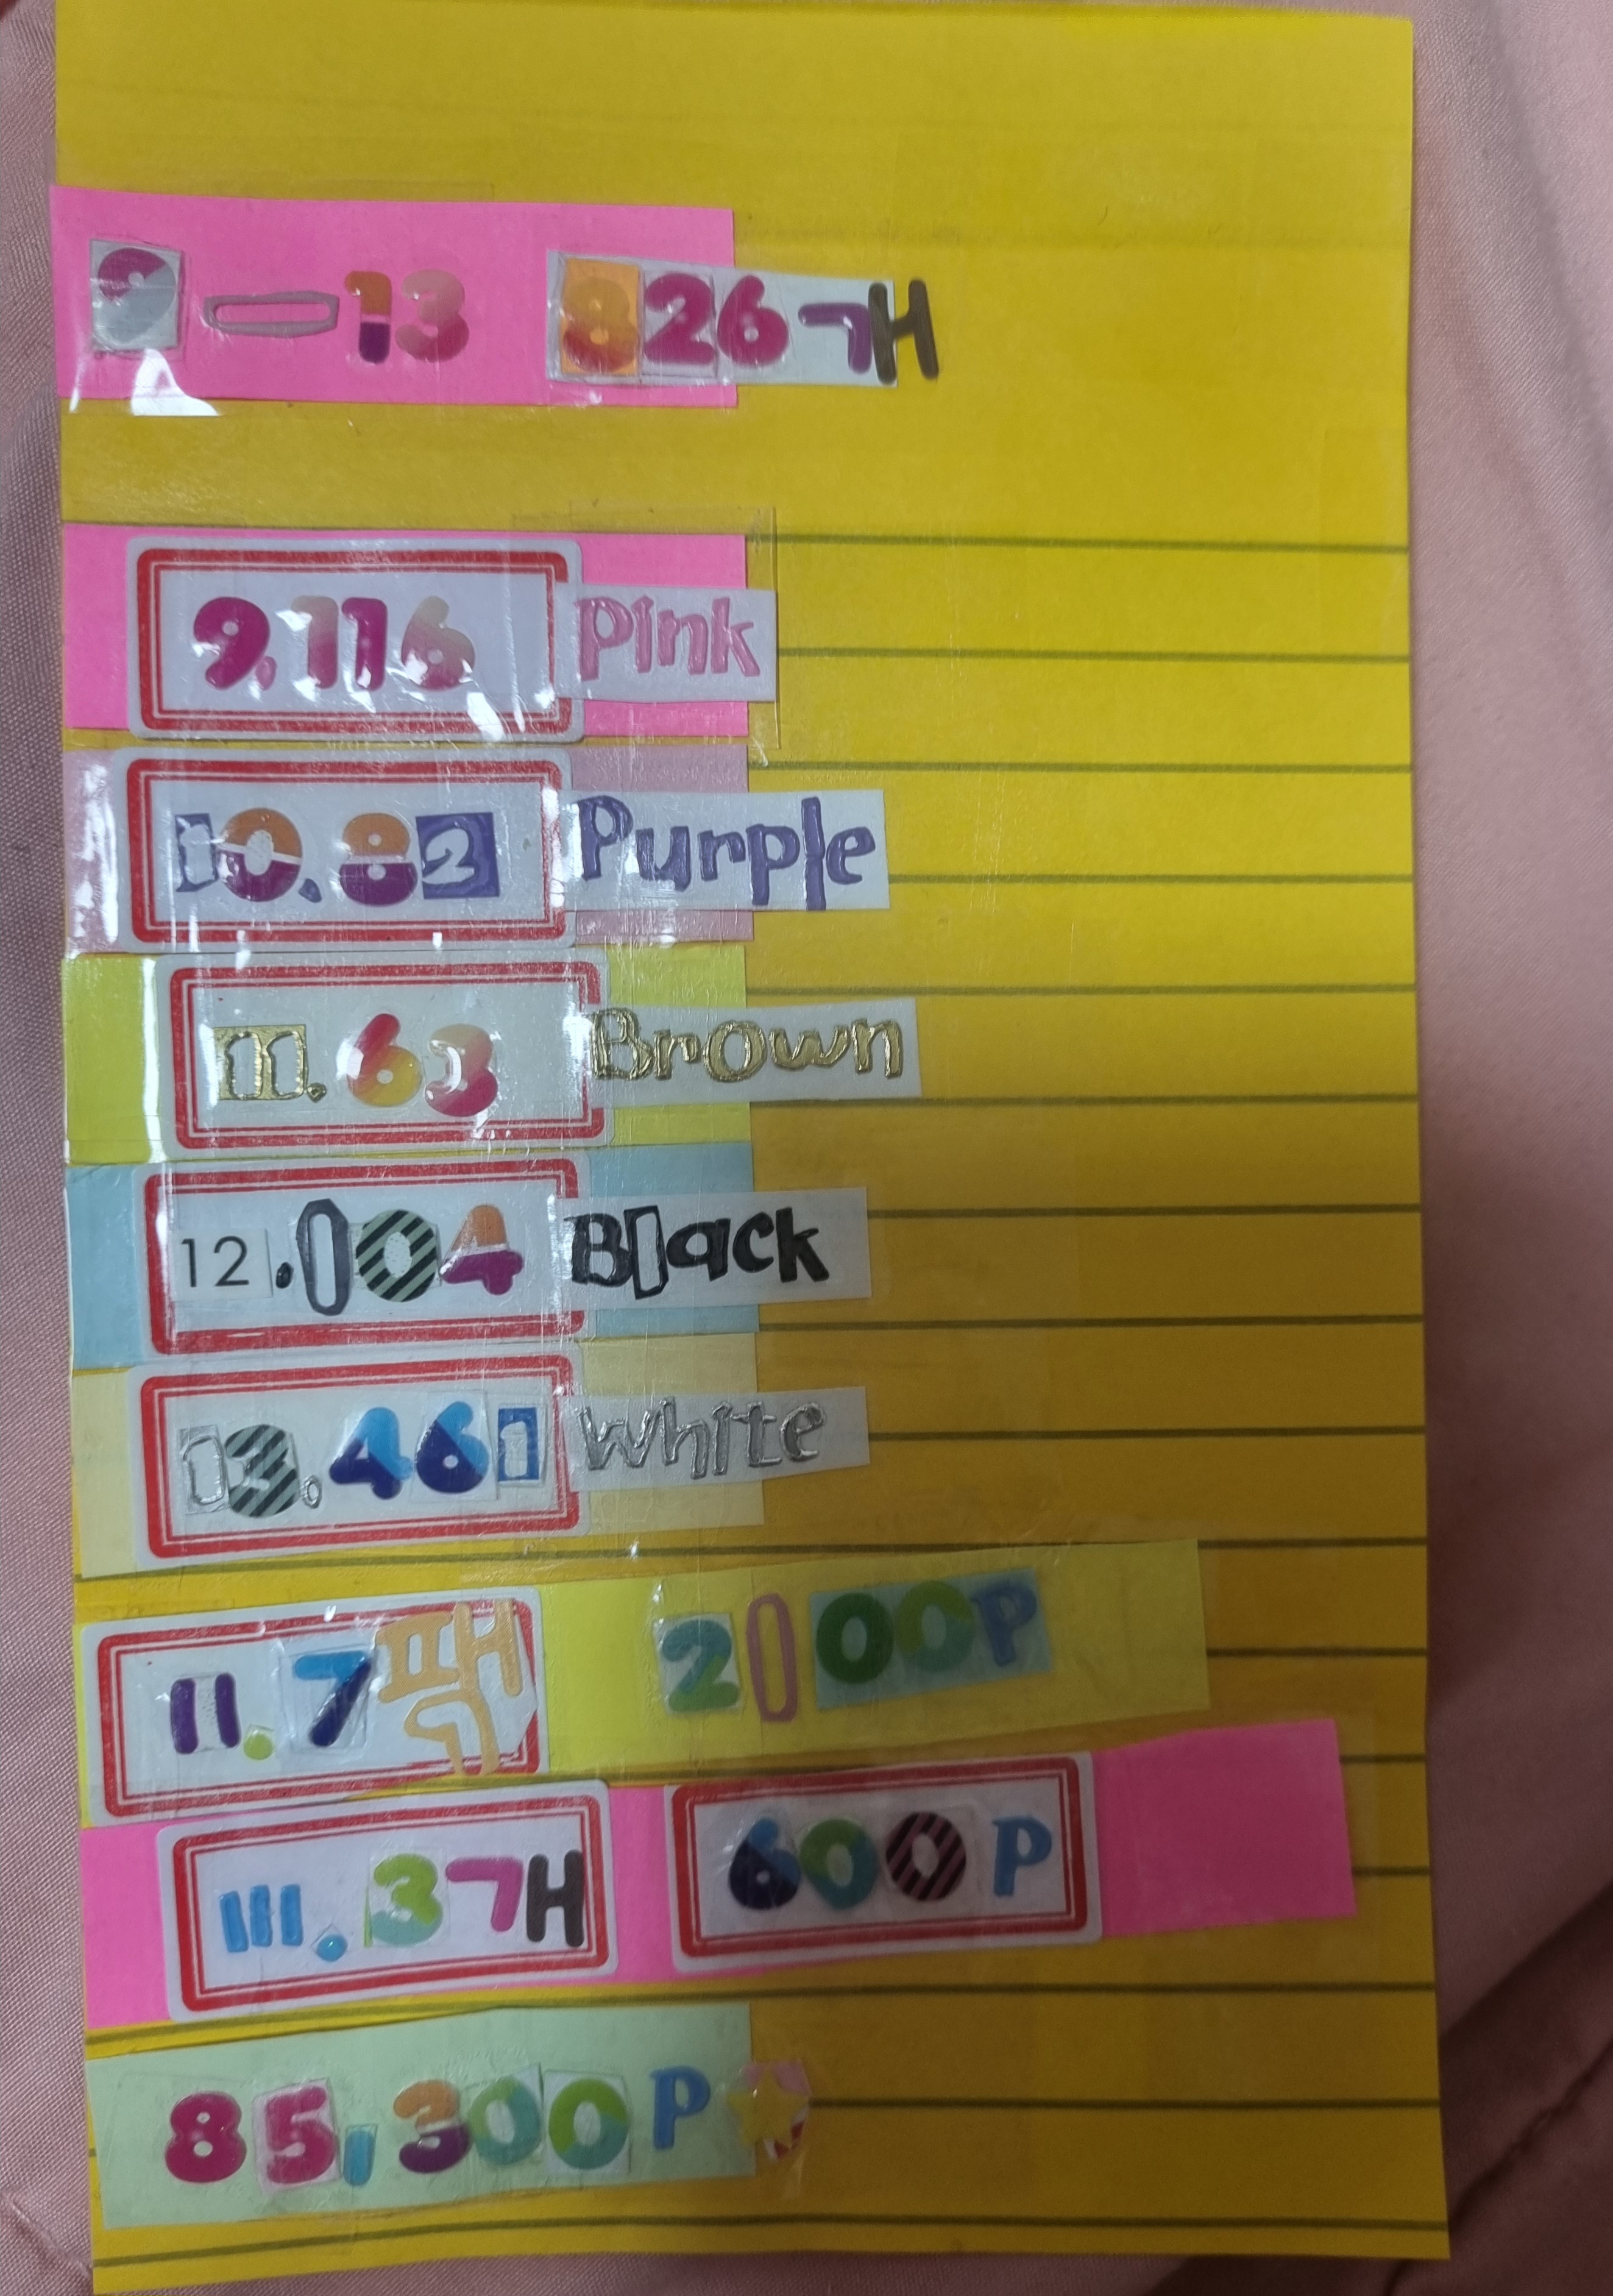 9-13 826개
9.116 Pink
10.82 Purple
11.63 Brown
12.104 Black
13.461 White
II.7팩 2100P
III.3개 600P
85,300P